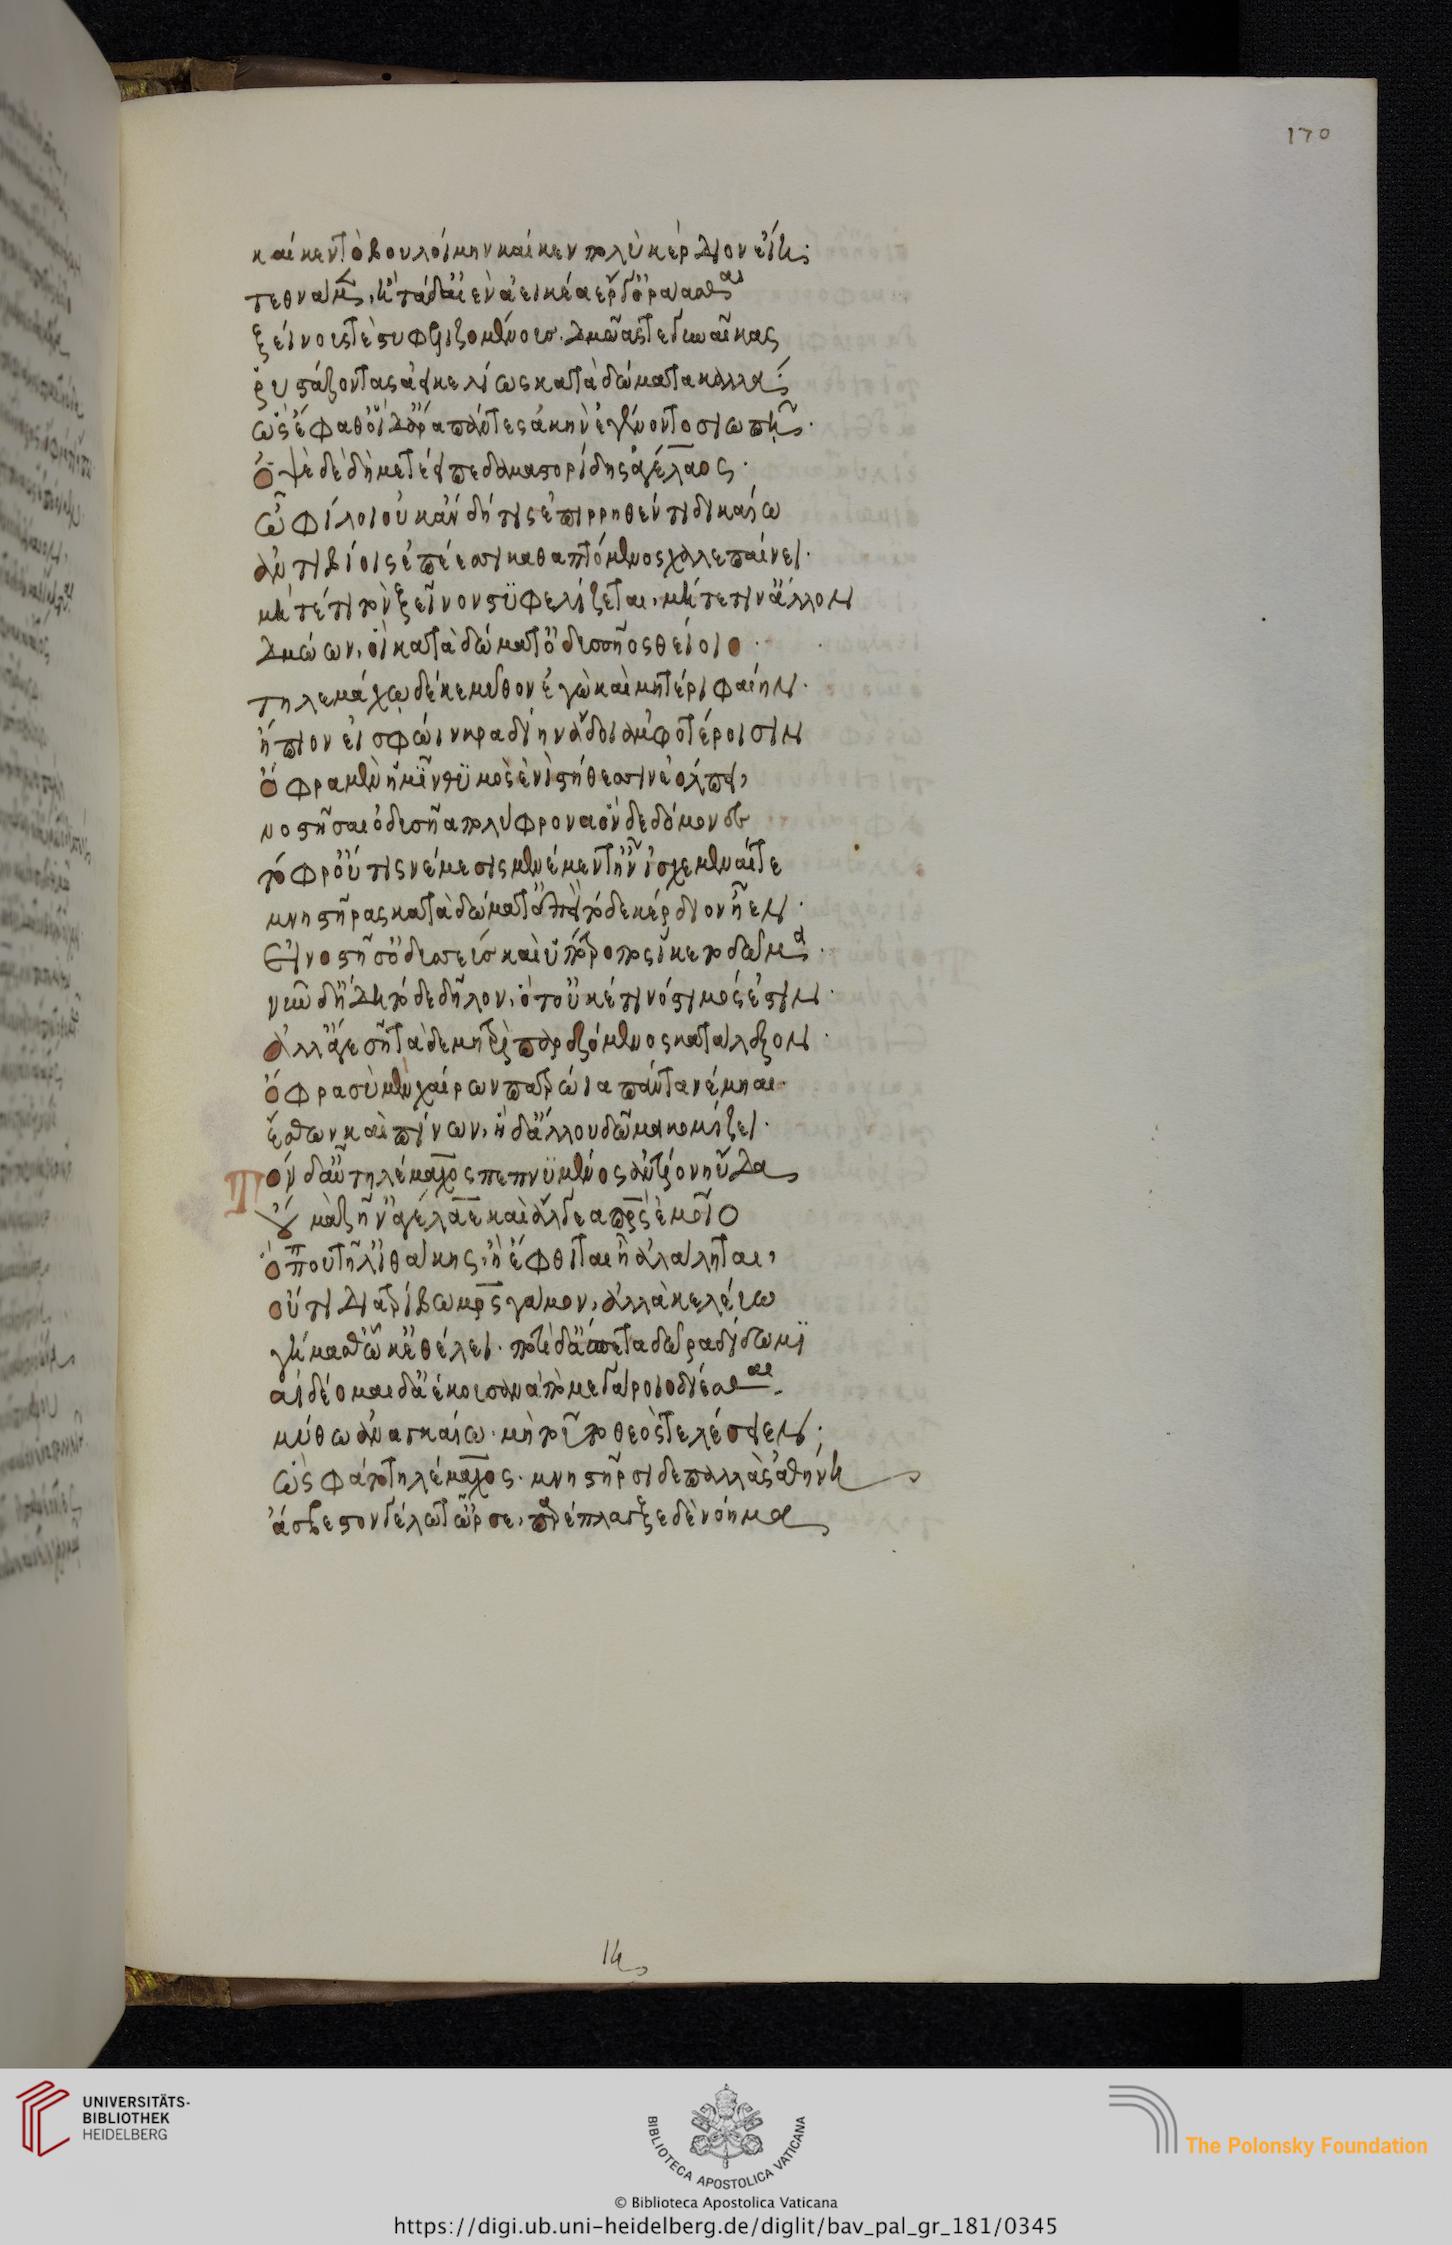 170
καί κεν τὸ βουλοίμην καί κεν πολὺ κέρδιον εἴη·
τεθνάμεν, ἢ τάδ' αἰὲν ἀεικέα ἔργ' ὁράασθαι
ξείνους τε στυφελιζομένους· δμωάς τε γυναῖκας
ῥυστάζοντας ἀεικελίως κατὰ δώματα καλά·
ὣς ἔφαθ' οἱ δ' ἄρα πάντες ἀκὴν ἐγένοντο σιωπῇ·
ὀψὲ δὲ δὴ μετέειπε δαμαστορίδης ἀγέλαος·
ὦ φίλοι οὐκ ἂν δή τις ἐπὶ ῥηθέντι δικαίω
ἀντιβίοις ἐπέεσι καθαπτόμενος χαλεπαίνει·
μήτέ τι τὸν ξεῖνον στυφελίζεται, μήτε τιν' ἄλλον
δμώων, οἳ κατὰ δώματ' ὀδυσσῆος θείοιο·
τηλεμάχω δέ κε μῦθον ἐγὼ καὶ μητέρι φαίην·
ἤπιον εἰ σφῶιν κραδίη ἅδοι ἀμφοτέροισιν
ὄφρα μὲν ἡμῖν θυμὸς ἐνὶ στήθεσιν ἐόλπει,
νοστῆσαι ὀδυσῆα πολύφρονα ὅνδε δόμονδε
τόφρ' οὔτις νέμεσις μενέμεν τ' ἦν ἰσχέμεναί τε
μνηστῆρας κατὰ δώματ' ἐπεὶ τόδε κέρδιον ἦεν·
εἰ νόστησ' ὀδυσεὺς καὶ ὑπότροπος ἵκετο δῶμα·
νῦν δ' ἤδη τόδε δῆλον, ὅτ' οὐκέτι νόστιμός ἐστιν·
ἀλλ' ἄγε σῇ τάδε μητρὶ παρεζόμενος κατάλεξον·
ὄφρα σὺ μὲν χαίρων πατρώια πάντα νέμηαι
ἔσθων καὶ πίνων, ἡ δ' ἄλλου δῶμα κομίζει·
Τὸν δ' αὖ τηλέμαχος πεπνυμένος ἀντίον ηὔδα
οὐ μὰ ζῆν' ἀγέλαε καὶ ἄλγεα πατρὸς ἐμοῖο
ὅς που τῆλ' ἰθάκης, ἢ ἔφθιται ἢ ἀλάληται,
οὔτι διατρίβω μητρὸς γάμον, ἀλλὰ κελεύω
γήμασθ' ᾧ κ' ἐθέλει· ποτὶ δ' ἄσπετα δῶρα δίδωμι
αἰδέομαι δ' ἀέκουσαν ἀπὸ μεγάροιο δίεσθαι
μύθω ἀναγκαίω· μὴ τοῦτο θεὸς τελέσειεν;
ὣς φάτο τηλέμαχος· μνηστῆρσι δὲ παλλὰς ἀθήνη
ἄσβεστον γέλωτ' ὦρσε, παρέπλαγξε δὲ νόημα
UNIVERSITÄTS-
BIBLIOTHEK
HEIDELBERG
BIBLIOTECA APOSTOLICA VATICANA
© Biblioteca Apostolica Vaticana
The Polonsky Foundation
https://digi.ub.uni-heidelberg.de/diglit/bav_pal_gr_181/0345